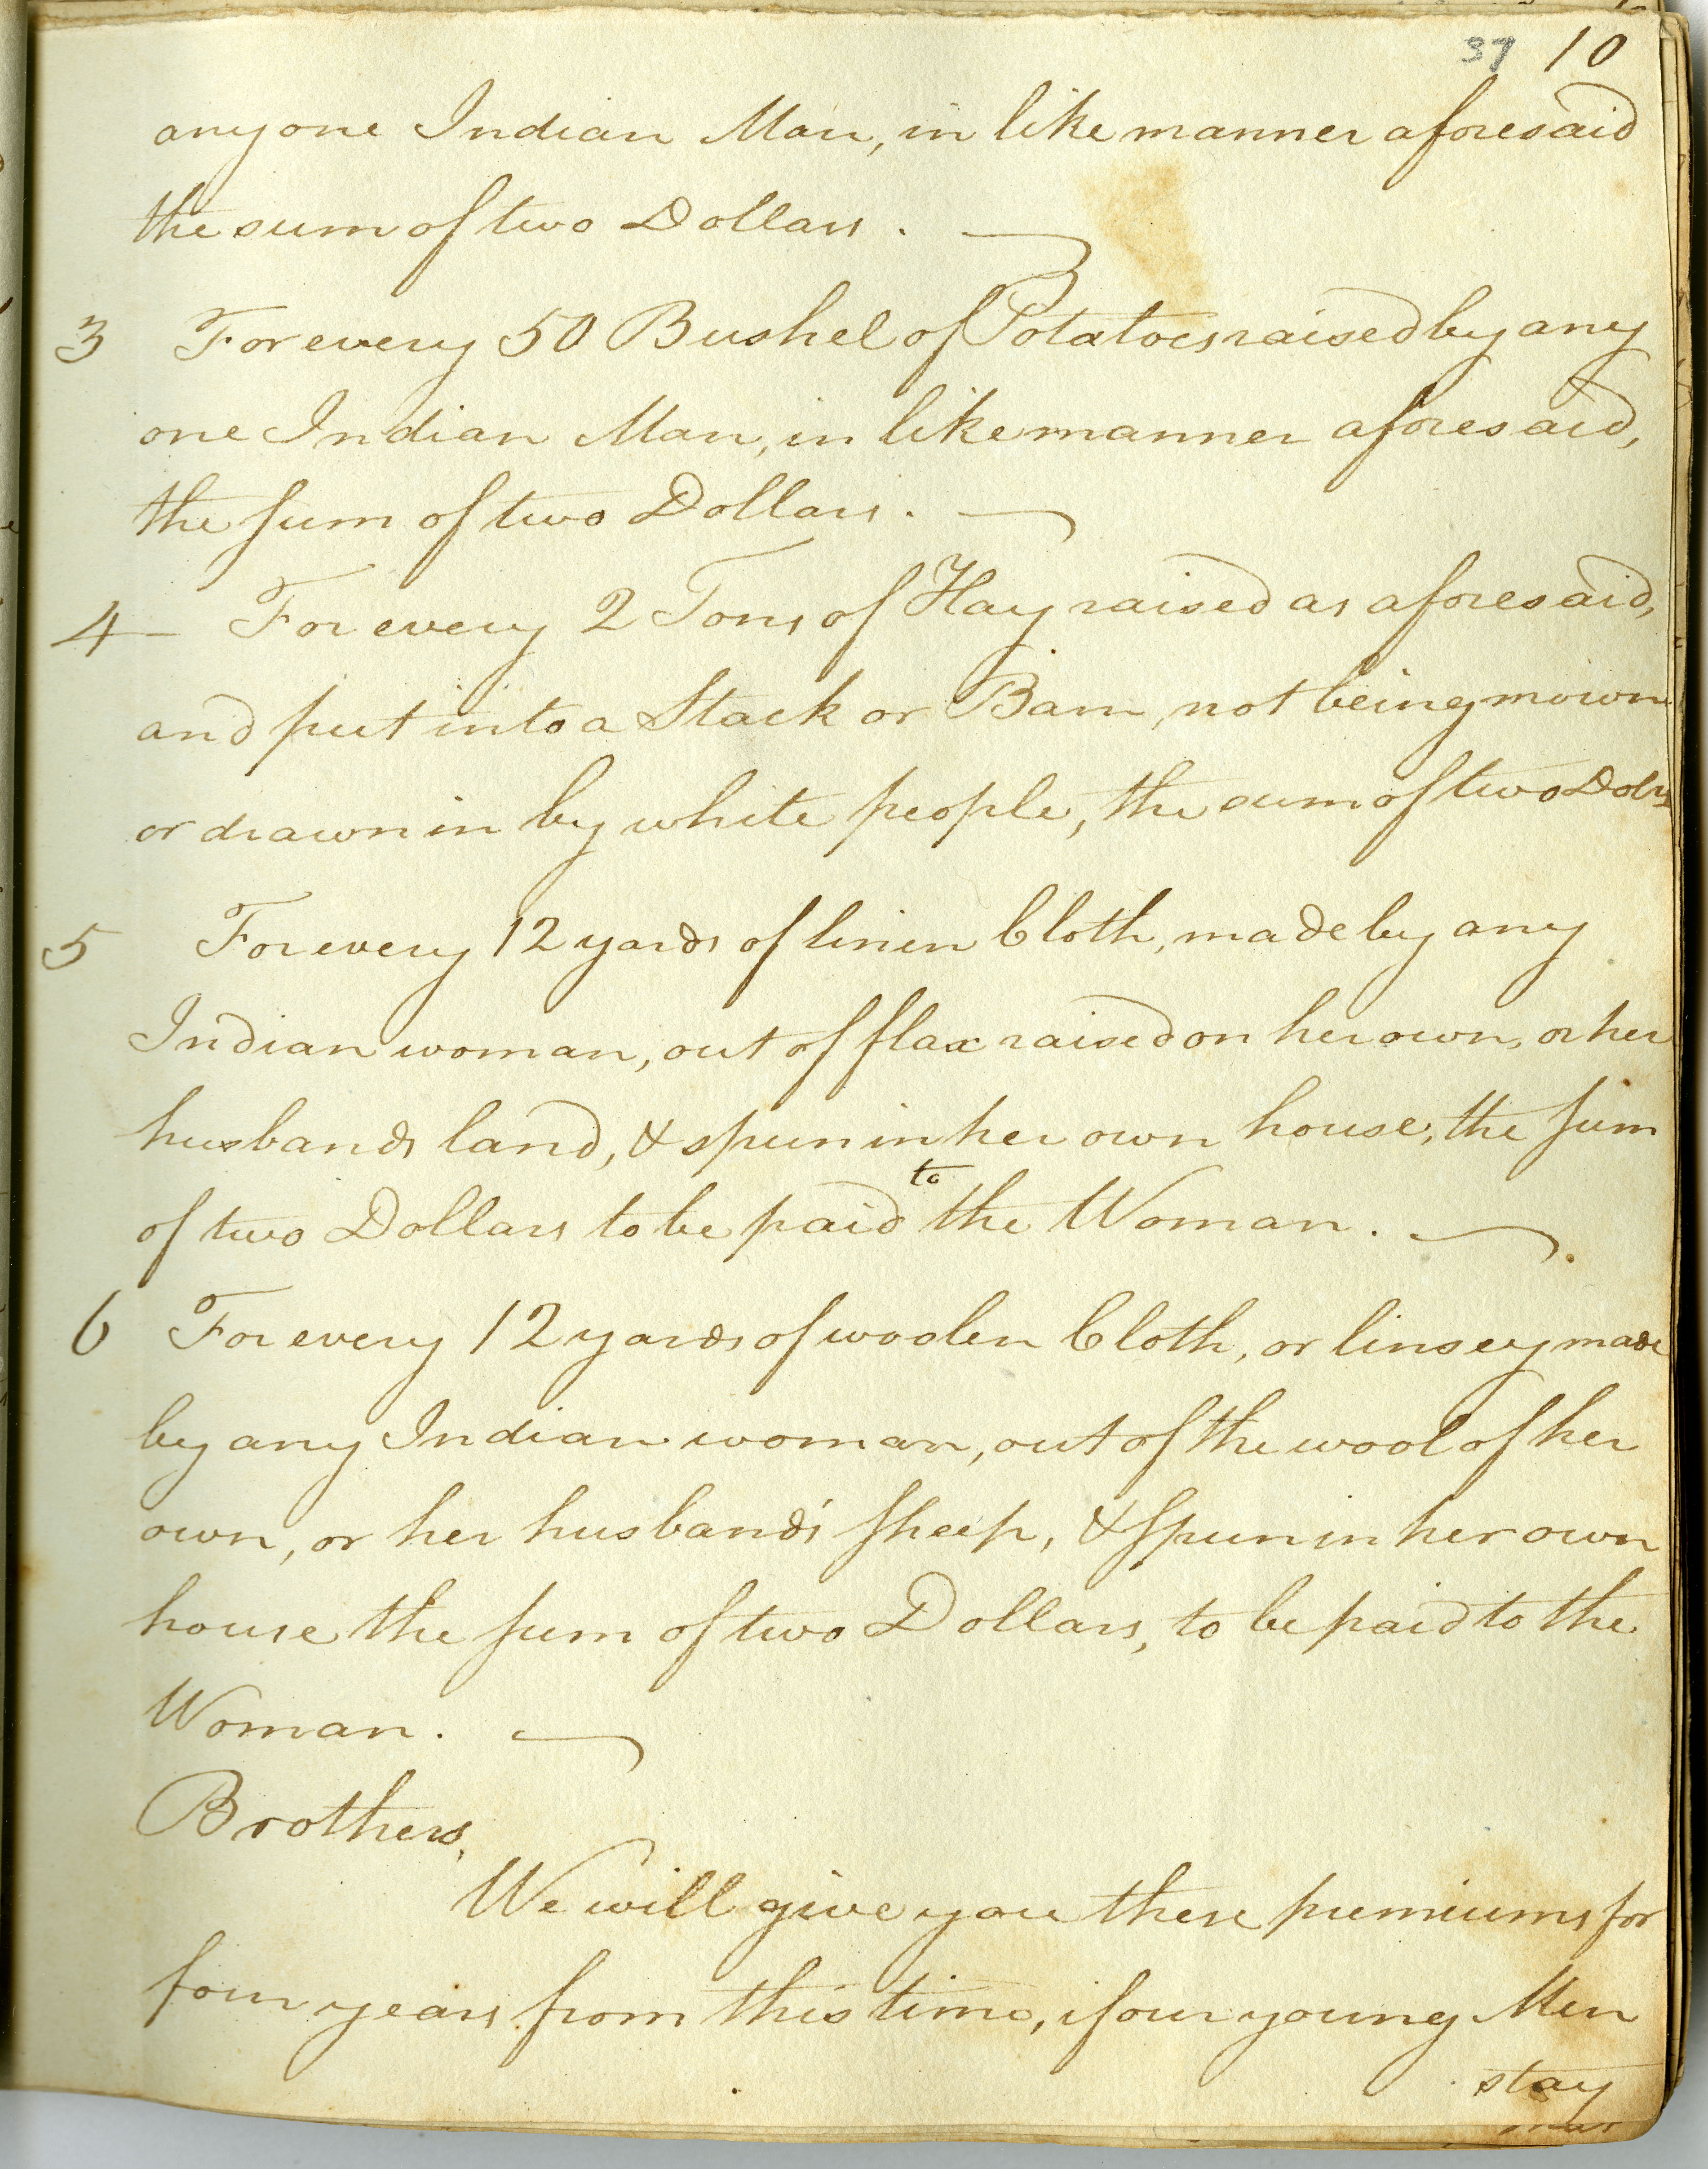 37 10
any one Indian Man, in like manner aforesaid
the sum of two Dollars.
3 For every 50 Bushel of Potatoes raised by any
one Indian Man, in like manner aforesaid,
the sum of two Dollars.
4 For every 2 Tons of Hay raised as aforesaid,
and put into a Stack or Barn, not being mown
or drawn in by white people, the sum of two Dolrs
5 For every 12 yards of linen Cloth, made by any
Indian woman, out of flax raised on her own, or her
husbands land, & spun in her own house, the sum
of two Dollars to be paid to the Woman.
6 For every 12 yards of woolen Cloth, or linsey made
by any Indian woman, out of the wool of her
own, or her husband's sheep, & spun in her own
house the sum of two Dollars, to be paid to the
Woman.
Brothers,
We will give you these premiums for
four years from this time, if our young Men
stay